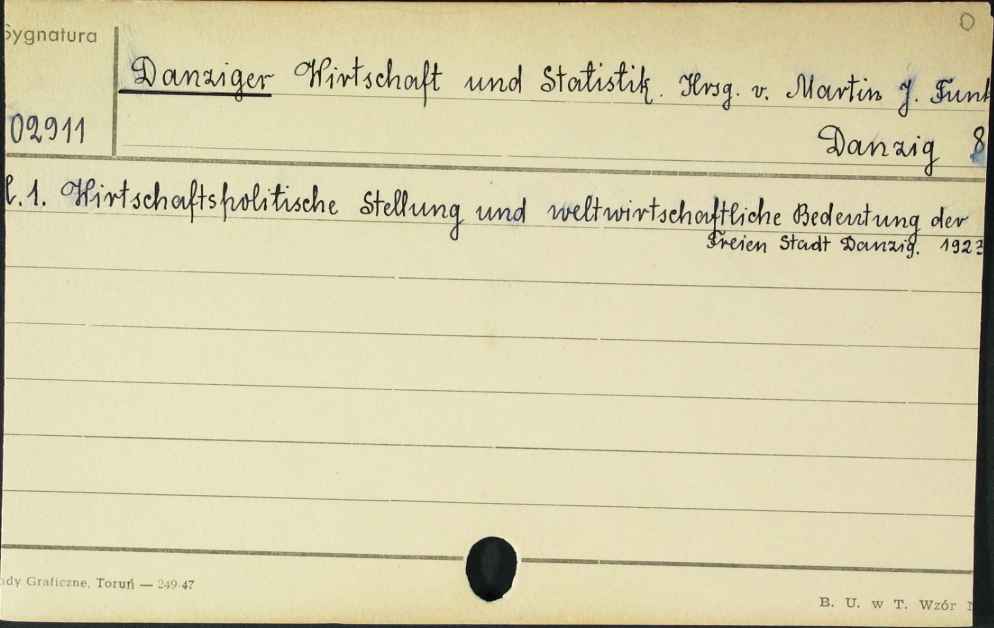 Sygnatura
O
Danziger Wirtschaft und Statistik. Hrsg. v. Martin J. Funk
02911
Danzig 8
1. Wirtschaftspolitische Stellung und weltwirtschaftliche Bedeutung der
Freien Stadt Danzig. 1923
ady Graficzne, Toruń — 249/47
B. U. w T. Wzór